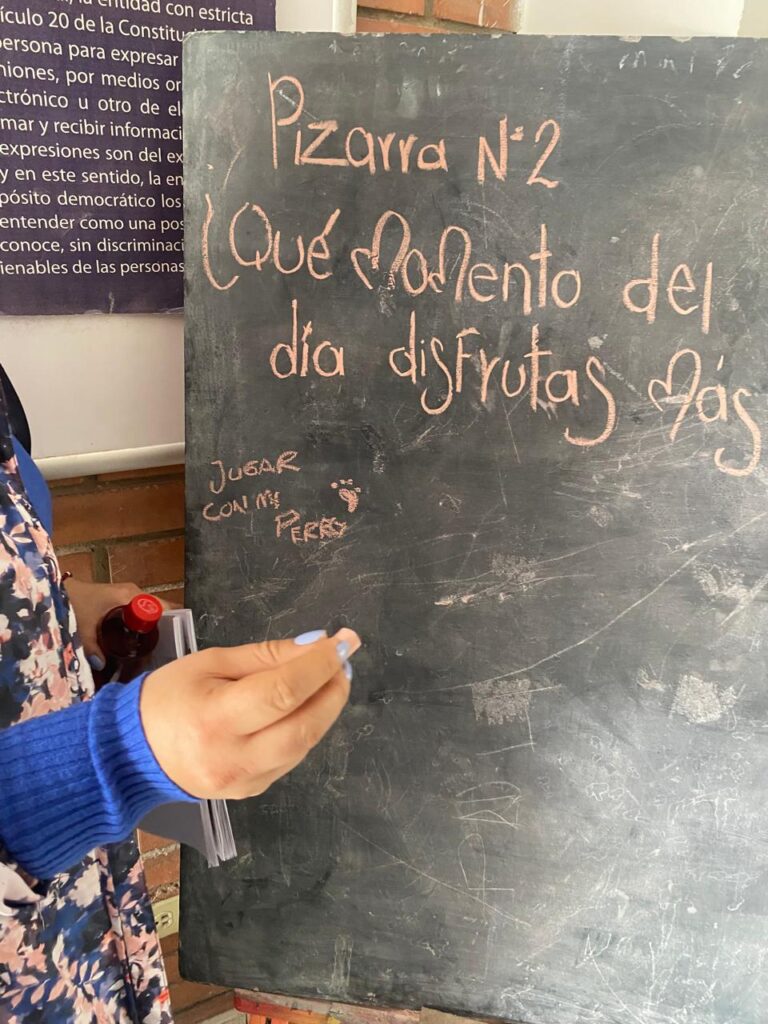 la entidad con estricta
ículo 20 de la Constitu
persona para expresar
niones, por medios or
ctrónico u otro de el
mar y recibir informaci
expresiones son del ex
y en este sentido, la en
pósito democrático los
entender como una pos
conoce, sin discriminaci
ienables de las personas
Pizarra N° 2
¿Qué Momento del
día disfrutas Más
JUGAR
CON MI
PERRY